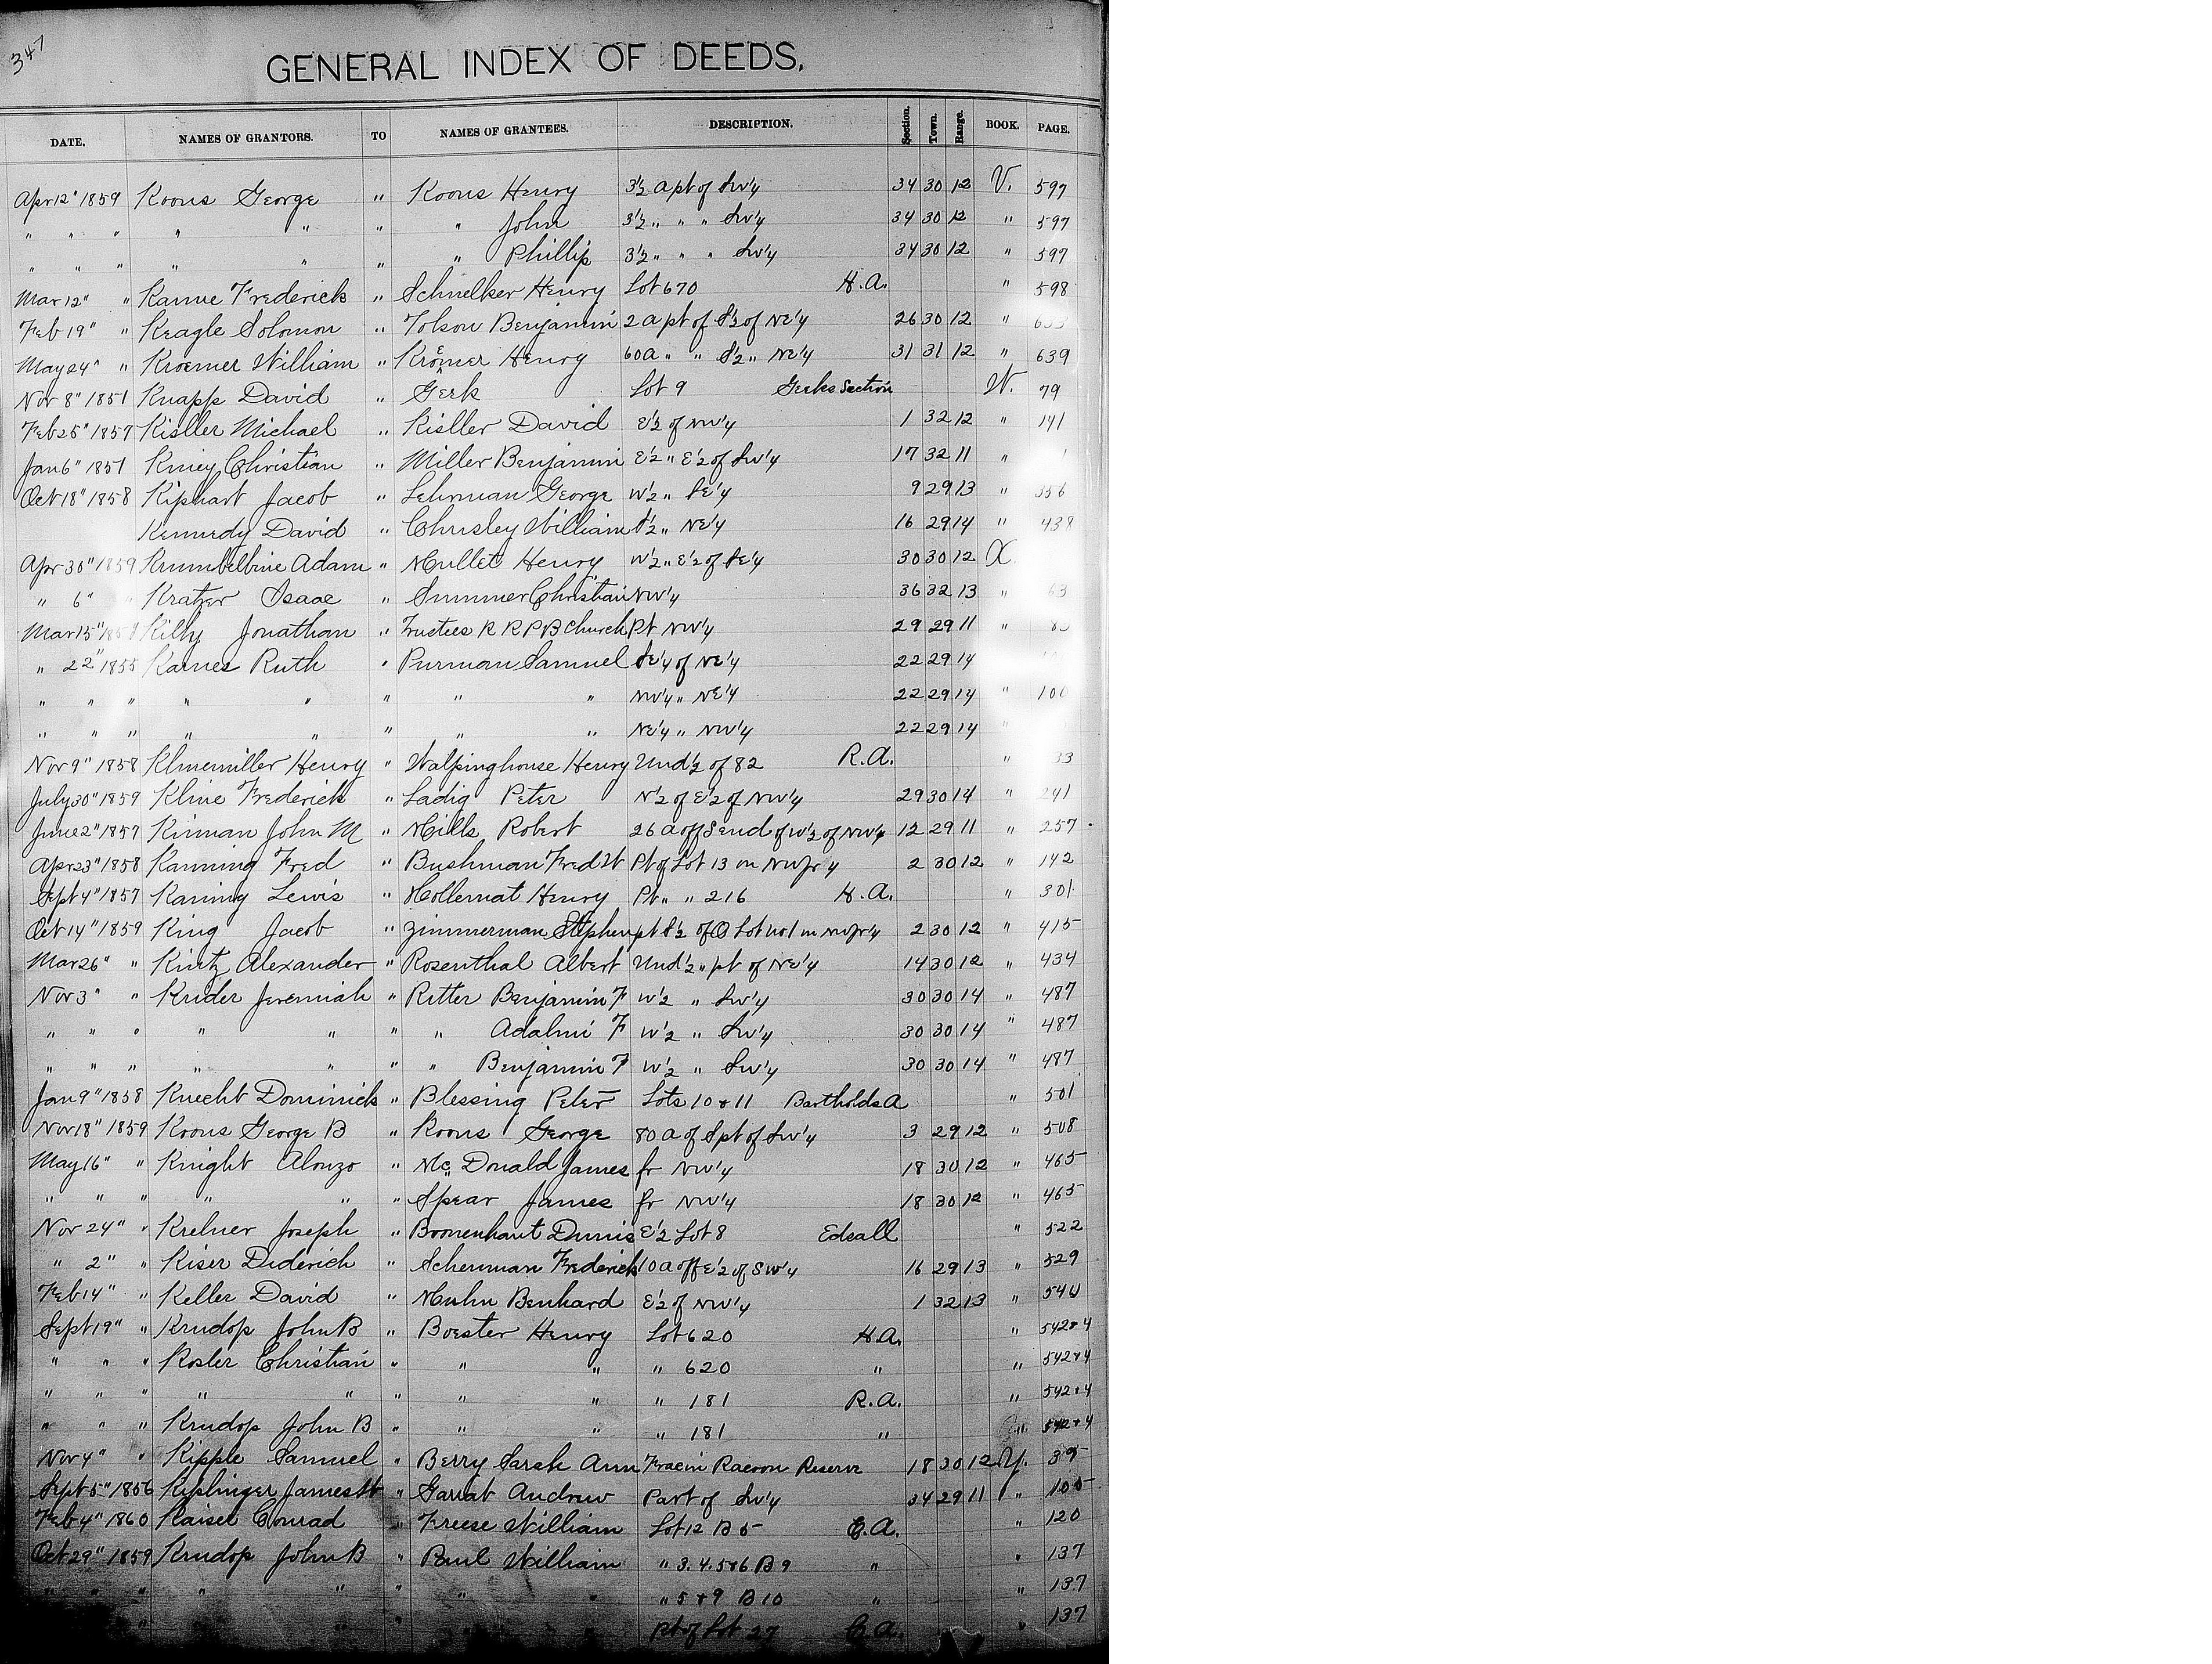 347
GENERAL INDEX OF DEEDS.
DATE. NAMES OF GRANTORS. TO NAMES OF GRANTEES. DESCRIPTION. Section. Town. Range. BOOK. PAGE.
Apr 12" 1859 Koons George " Koons Henry 3½ a pt of Sw¼ 34 30 12 V. 597
" " " " " " " John 3½ " " " Sw¼ 34 30 12 " 597
" " " " " " " Phillip 3½ " " " Sw¼ 34 30 12 " 597
Mar 12" " Kanne Frederick " Schnelker Henry Lot 670 H.A. " 598
Feb 19" " Keagle Solomon " Tolson Benjamin 2 a pt of S½ of NE¼ 26 30 12 "
May 24" " Kroemer William " Kroemer Henry 60a " " S½ " NE¼ 31 31 12 " 639
Nov 8" 1851 Knapp David " Gerk Lot 9 Gerks Section W. 79
Feb 25" 1857 Kisller Michael " Kisller David E½ of NW¼ 1 32 12 " 141
Jan 6" 1851 Kiney Christian " Miller Benjamin E½ " E½ of Sw¼ 17 32 11 "
Oct 18" 1858 Kiphart Jacob " Lehman George W½ " SE¼ 9 29 13 " 356
Kennedy David " Chrisley William S½ " NE¼ 16 29 14 " 438
Apr 30" 1859 Krumbelbine Adam " Mullet Henry W½ " E½ of SE¼ 30 30 12 X
" 6" " Kratzer Isaac " Summer Christian NW¼ 36 32 13 " 63
Mar 15" Killy Jonathan " Trustees R R P B Church Pt NW¼ 29 29 11 "
" 22" 1855 Karnes Ruth " Purman Samuel SE¼ of NE¼ 22 29 14
" " " " " " " " NW¼ " NE¼ 22 29 14 " 100
" " " " " " " " NE¼ " NW¼ 22 29 14 "
Nov 9" 1858 Klinemiller Henry " Walpinghouse Henry Und½ of 82 R.A. " 33
July 30" 1859 Kline Frederick " Ladig Peter N½ of E½ of NW¼ 29 30 14 " 241
June 2" 1857 Kinnan John M " Mills Robert 26 a off S end of W½ of NW¼ 12 29 11 " 257
Apr 23" 1858 Kanning Fred " Bushman Fred W Pt of Lot 13 in NW fr ¼ 2 30 12 " 142
Sept 4" 1857 Kaning Lewis " Hollernat Henry Pt " " 216 H.A. " 301
Oct 14" 1859 King Jacob " Zimmerman Stephen pt S½ of O Lot no 1 in NW fr ¼ 2 30 12 " 415
Mar 26" " Kintz Alexander " Rosenthal Albert Und½ " pt of NE¼ 14 30 12 " 434
Nov 3" " Krider Jeremiah " Ritter Benjamin F W½ " Sw¼ 30 30 14 " 487
" " " " " " " Adalmi F W½ " Sw¼ 30 30 14 " 487
" " " " " " " Benjamin F W½ " Sw¼ 30 30 14 " 487
Jan 9" 1858 Knecht Dominick " Blessing Peter Lots 10 & 11 Bartholds A " 501
Nov 18" 1859 Koons George B " Koons George 80 a of S pt of Sw¼ 3 29 12 " 508
May 16" " Knight Alonzo " Mc Donald James fr NW¼ 18 30 12 " 465
" " " " " " Spear James fr NW¼ 18 30 12 " 465
Nov 24" " Krelner Joseph " Boonenhaut Dennis E½ Lot 8 Edsall " 522
" 2" " Kiser Diderich " Schenman Frederick 10 a off E½ of SW¼ 16 29 13 " 529
Feb 14" " Keller David " Muhn Benhard E½ of NW¼ 1 32 13 " 540
Sept 19" " Krudop John B " Boester Henry Lot 620 H.A. " 542&4
" " " Kosler Christian " " " " 620 " " 542&4
" " " " " " " " " 181 R.A. " 542&4
" " " Krudop John B " " " " 181 " " 542&4
Nov 4" " Kipple Samuel " Berry Sarah Ann Frac in Racoon Reserve 18 30 12 Y. 39
Sept 5" 1856 Kiplinger James W " Garrat Andrew Part of Sw¼ 34 29 11 " 105
Feb 4" 1860 Kaisel Conrad " Freese William Lot 12 B 5 C.A. " 120
Oct 29" 1859 Krudop John B " Paul William " 3.4.5&6 B 9 " " 137
" " " " " " " " " 5 & 9 B 10 " " 137
" " " " Pt of Lot 27 C.A. " 137